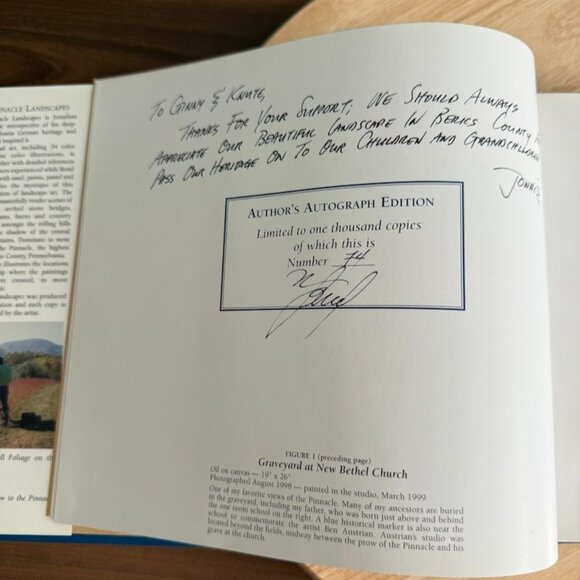 NACLE LANDSCAPES
cle Landscapes is Jonathan
retrospective of his deep-
German heritage and
inspired it.
art, including 54 color
color illustrations, is
ther with detailed references
experiences while Bond
with easel, paints, pastel and
the mystique of this
tion of landscape art. The
masterfully render scenes of
arched stone bridges,
barns and country
amongst the rolling hills
shadow of the central
Dominant in most
the Pinnacle, the highest
County, Pennsylvania.
illustrates the locations
where the paintings
created, in most
Landscapes was produced
and each copy is
by the artist
ll Foliage on th
w to the Pinnac
TO GINNY & KNUTE,
THANKS FOR YOUR SUPPORT; WE SHOULD ALWAYS
APPRECIATE OUR BEAUTIFUL LANDSCAPE IN BERKS COUNTY
PASS OUR HERITAGE ON TO OUR CHILDREN AND GRANDCHILDREN
AUTHOR'S AUTOGRAPH EDITION
Limited to one thousand copies
of which this is
Number 74
FIGURE 1 (preceding page)
Graveyard at New Bethel Church
Oil on canvas — 19" x 26"
Photographed August 1998 — painted in the studio, March 1999
One of my favorite views of the Pinnacle. Many of my ancestors are buried
in the graveyard, including my father, who was born just above and behind
the one room school on the right. A blue historical marker is also near the
school to commemorate the artist Ben Austrian. Austrian's studio was
located beyond the fields, midway between the prow of the Pinnacle and his
grave at the church.